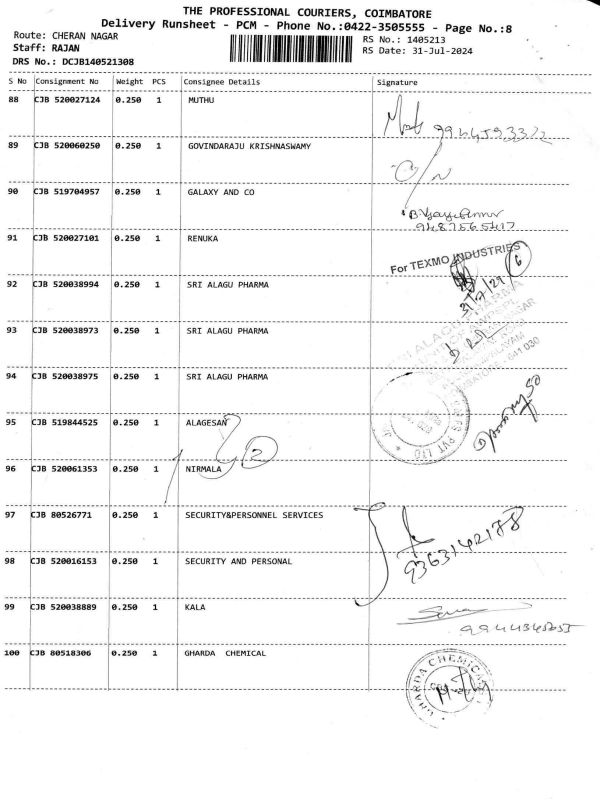 THE PROFESSIONAL COURIERS, COIMBATORE
Delivery Runsheet - PCM - Phone No.:0422-3505555 - Page No.:8
Route: CHERAN NAGAR
RS No.: 1405213
Staff: RAJAN
RS Date: 31-Jul-2024
DRS No.: DCJB140521308
S No Consignment No Weight PCS Consignee Details Signature
88 CJB 520027124 0.250 1 MUTHU
89 CJB 520060250 0.250 1 GOVINDARAJU KRISHNASWAMY
90 CJB 519704957 0.250 1 GALAXY AND CO
91 CJB 520027101 0.250 1 RENUKA
For TEXMO INDUSTRIES
92 CJB 520038994 0.250 1 SRI ALAGU PHARMA
93 CJB 520038973 0.250 1 SRI ALAGU PHARMA
94 CJB 520038975 0.250 1 SRI ALAGU PHARMA
95 CJB 519844525 0.250 1 ALAGESAN
2
96 CJB 520061353 0.250 1 NIRMALA
97 CJB 80526771 0.250 1 SECURITY&PERSONNEL SERVICES
9363142178
98 CJB 520016153 0.250 1 SECURITY AND PERSONAL
99 CJB 520038889 0.250 1 KALA
100 CJB 80518306 0.250 1 GHARDA CHEMICAL
GHARDA CHEMICALS